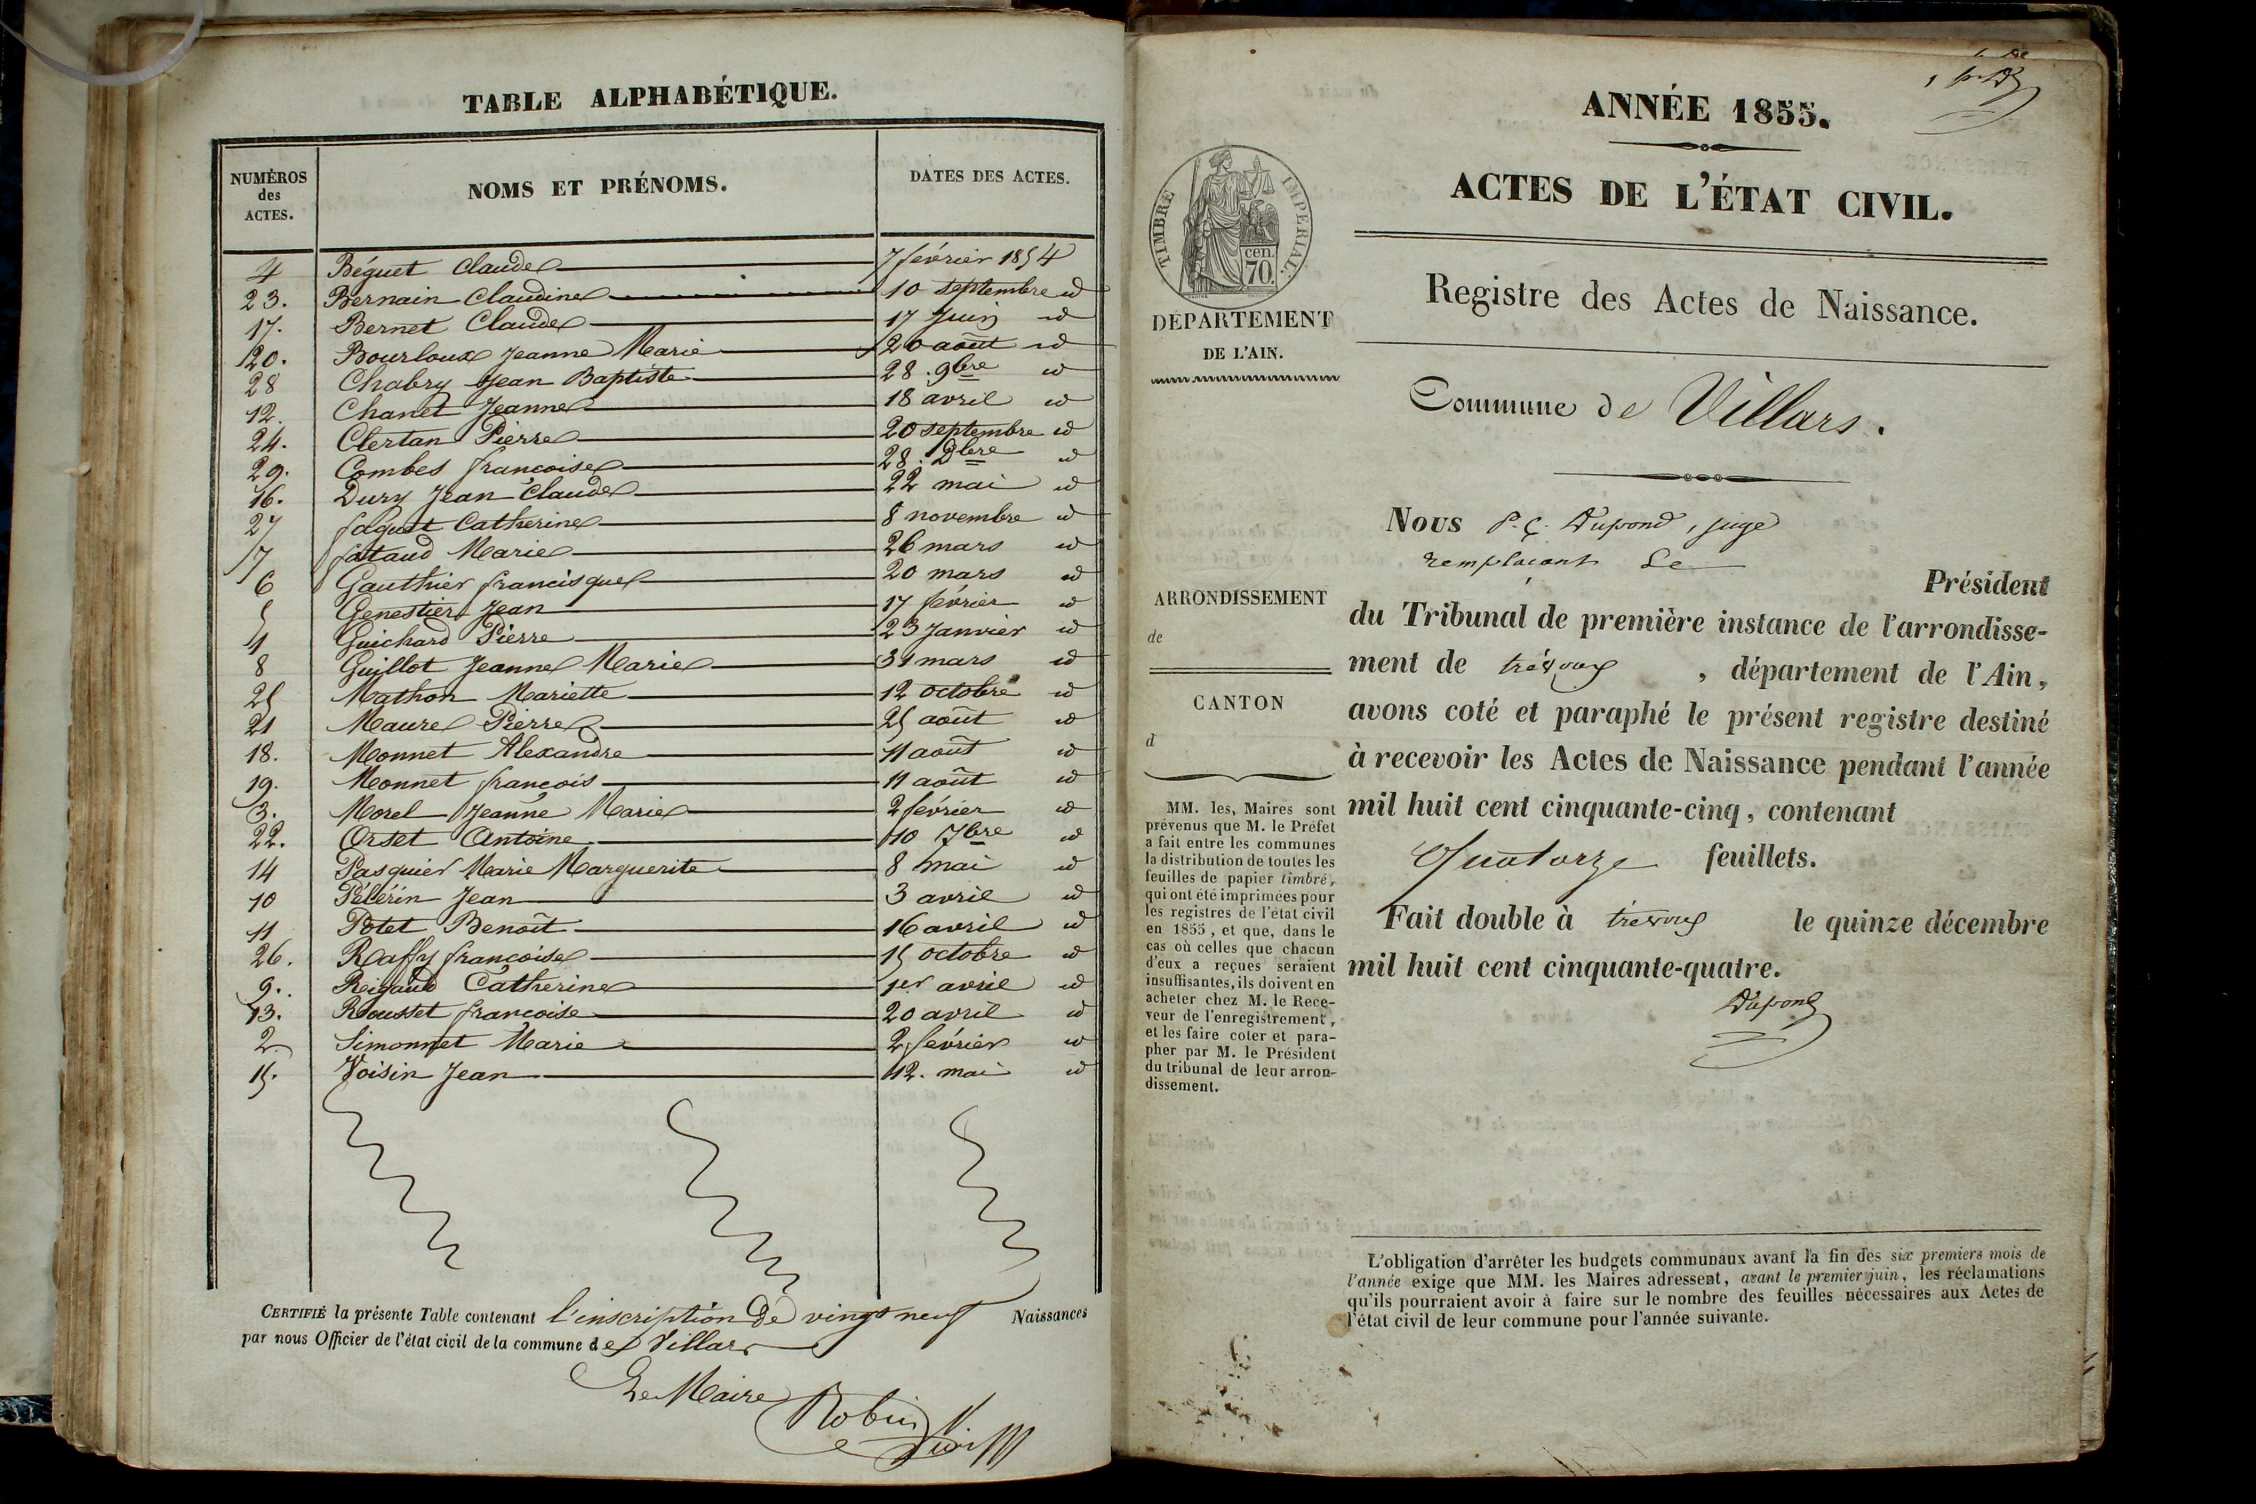 TABLE ALPHABÉTIQUE.
NUMÉROS
des
ACTES.
NOMS ET PRÉNOMS.
DATES DES ACTES.
4 Béguet Claude 7 février 1854
23. Bernain Claudine 10 septembre id
17. Bernet Claude 17 Juin id
20. Bourloux Jeanne Marie 20 août id
28 Chabry Jean Baptiste 28. 9bre id
12. Chanet Jeanne 18 avril id
24. Clertan Pierre 20 septembre id
29. Combes françoise 28. Dbre id
16. Dury Jean Claude 22 mai id
27 faguet Catherine 8 novembre id
7 fattaud Marie 26 mars id
6 Gauthier francisque 20 mars id
5 Genestier Jean 17 février id
1 Guichard Pierre 23 Janvier id
8 Guillot Jeanne Marie 31 mars id
25 Mathon Mariette 12 octobre id
21 Maure Pierre 25 août id
18. Monnet Alexandre 11 août id
19. Monnet françois 11 août id
3. Morel Jeanne Marie 2 février id
22. Orset Antoine 10 7bre id
14 Pasquier Marie Marguerite 8 mai id
10 Pélerin Jean 3 avril id
11 Potet Benoît 16 avril id
26. Raffy françoise 15 octobre id
9. Reigaud Catherine 1er avril id
13. Rousset françoise 20 avril id
2. Simonnet Marie 2 février id
15. Voisin Jean 12. mai id
CERTIFIÉ la présente Table contenant l'inscription de vingt neuf Naissances
par nous Officier de l'état civil de la commune de Villars
Le Maire
Robin
ANNÉE 1855.
ACTES DE L'ÉTAT CIVIL.
TIMBRE IMPÉRIAL.
cen.
70.
DÉPARTEMENT
DE L'AIN.
Registre des Actes de Naissance.
Commune de Villars.
ARRONDISSEMENT
de
CANTON
d
MM. les, Maires sont
prévenus que M. le Préfet
a fait entre les communes
la distribution de toutes les
feuilles de papier timbré,
qui ont été imprimées pour
les registres de l'état civil
en 1855, et que, dans le
cas où celles que chacun
d'eux a reçues seraient
insuffisantes, ils doivent en
acheter chez M. le Rece-
veur de l'enregistrement,
et les faire coter et para-
pher par M. le Président
du tribunal de leur arron-
dissement.
Nous P. C. Dupond, juge
remplaçant Le
Président
du Tribunal de première instance de l'arrondisse-
ment de trévoux , département de l'Ain,
avons coté et paraphé le présent registre destiné
à recevoir les Actes de Naissance pendant l'année
mil huit cent cinquante-cinq, contenant
Quatorze feuillets.
Fait double à trévoux le quinze décembre
mil huit cent cinquante-quatre.
Dupond
L'obligation d'arrêter les budgets communaux avant la fin des six premiers mois de
l'année exige que MM. les Maires adressent, avant le premier juin, les réclamations
qu'ils pourraient avoir à faire sur le nombre des feuilles nécessaires aux Actes de
l'état civil de leur commune pour l'année suivante.